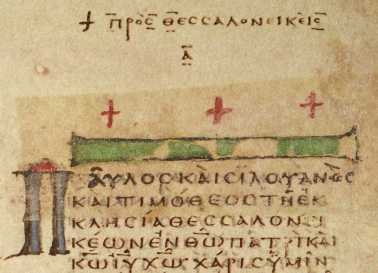 + ΠΡΟC ΘΕCCΑΛΟΝΕΙΚΕΙC
Α
+ + +
ΠΑΥΛΟCΚΑΙCΙΛΟΥΑΝΟC
ΚΑΙΤΙΜΟΘΕΟCΤΗΕΚ
ΚΛΗCΙΑΘΕCCΑΛΟΝΙ
ΚΕΩΝΕΝΘΩΠΑΤΡΙΚΑΙ
ΚΩΙΥΧΩΧΑΡΙCΥΜΙΝ